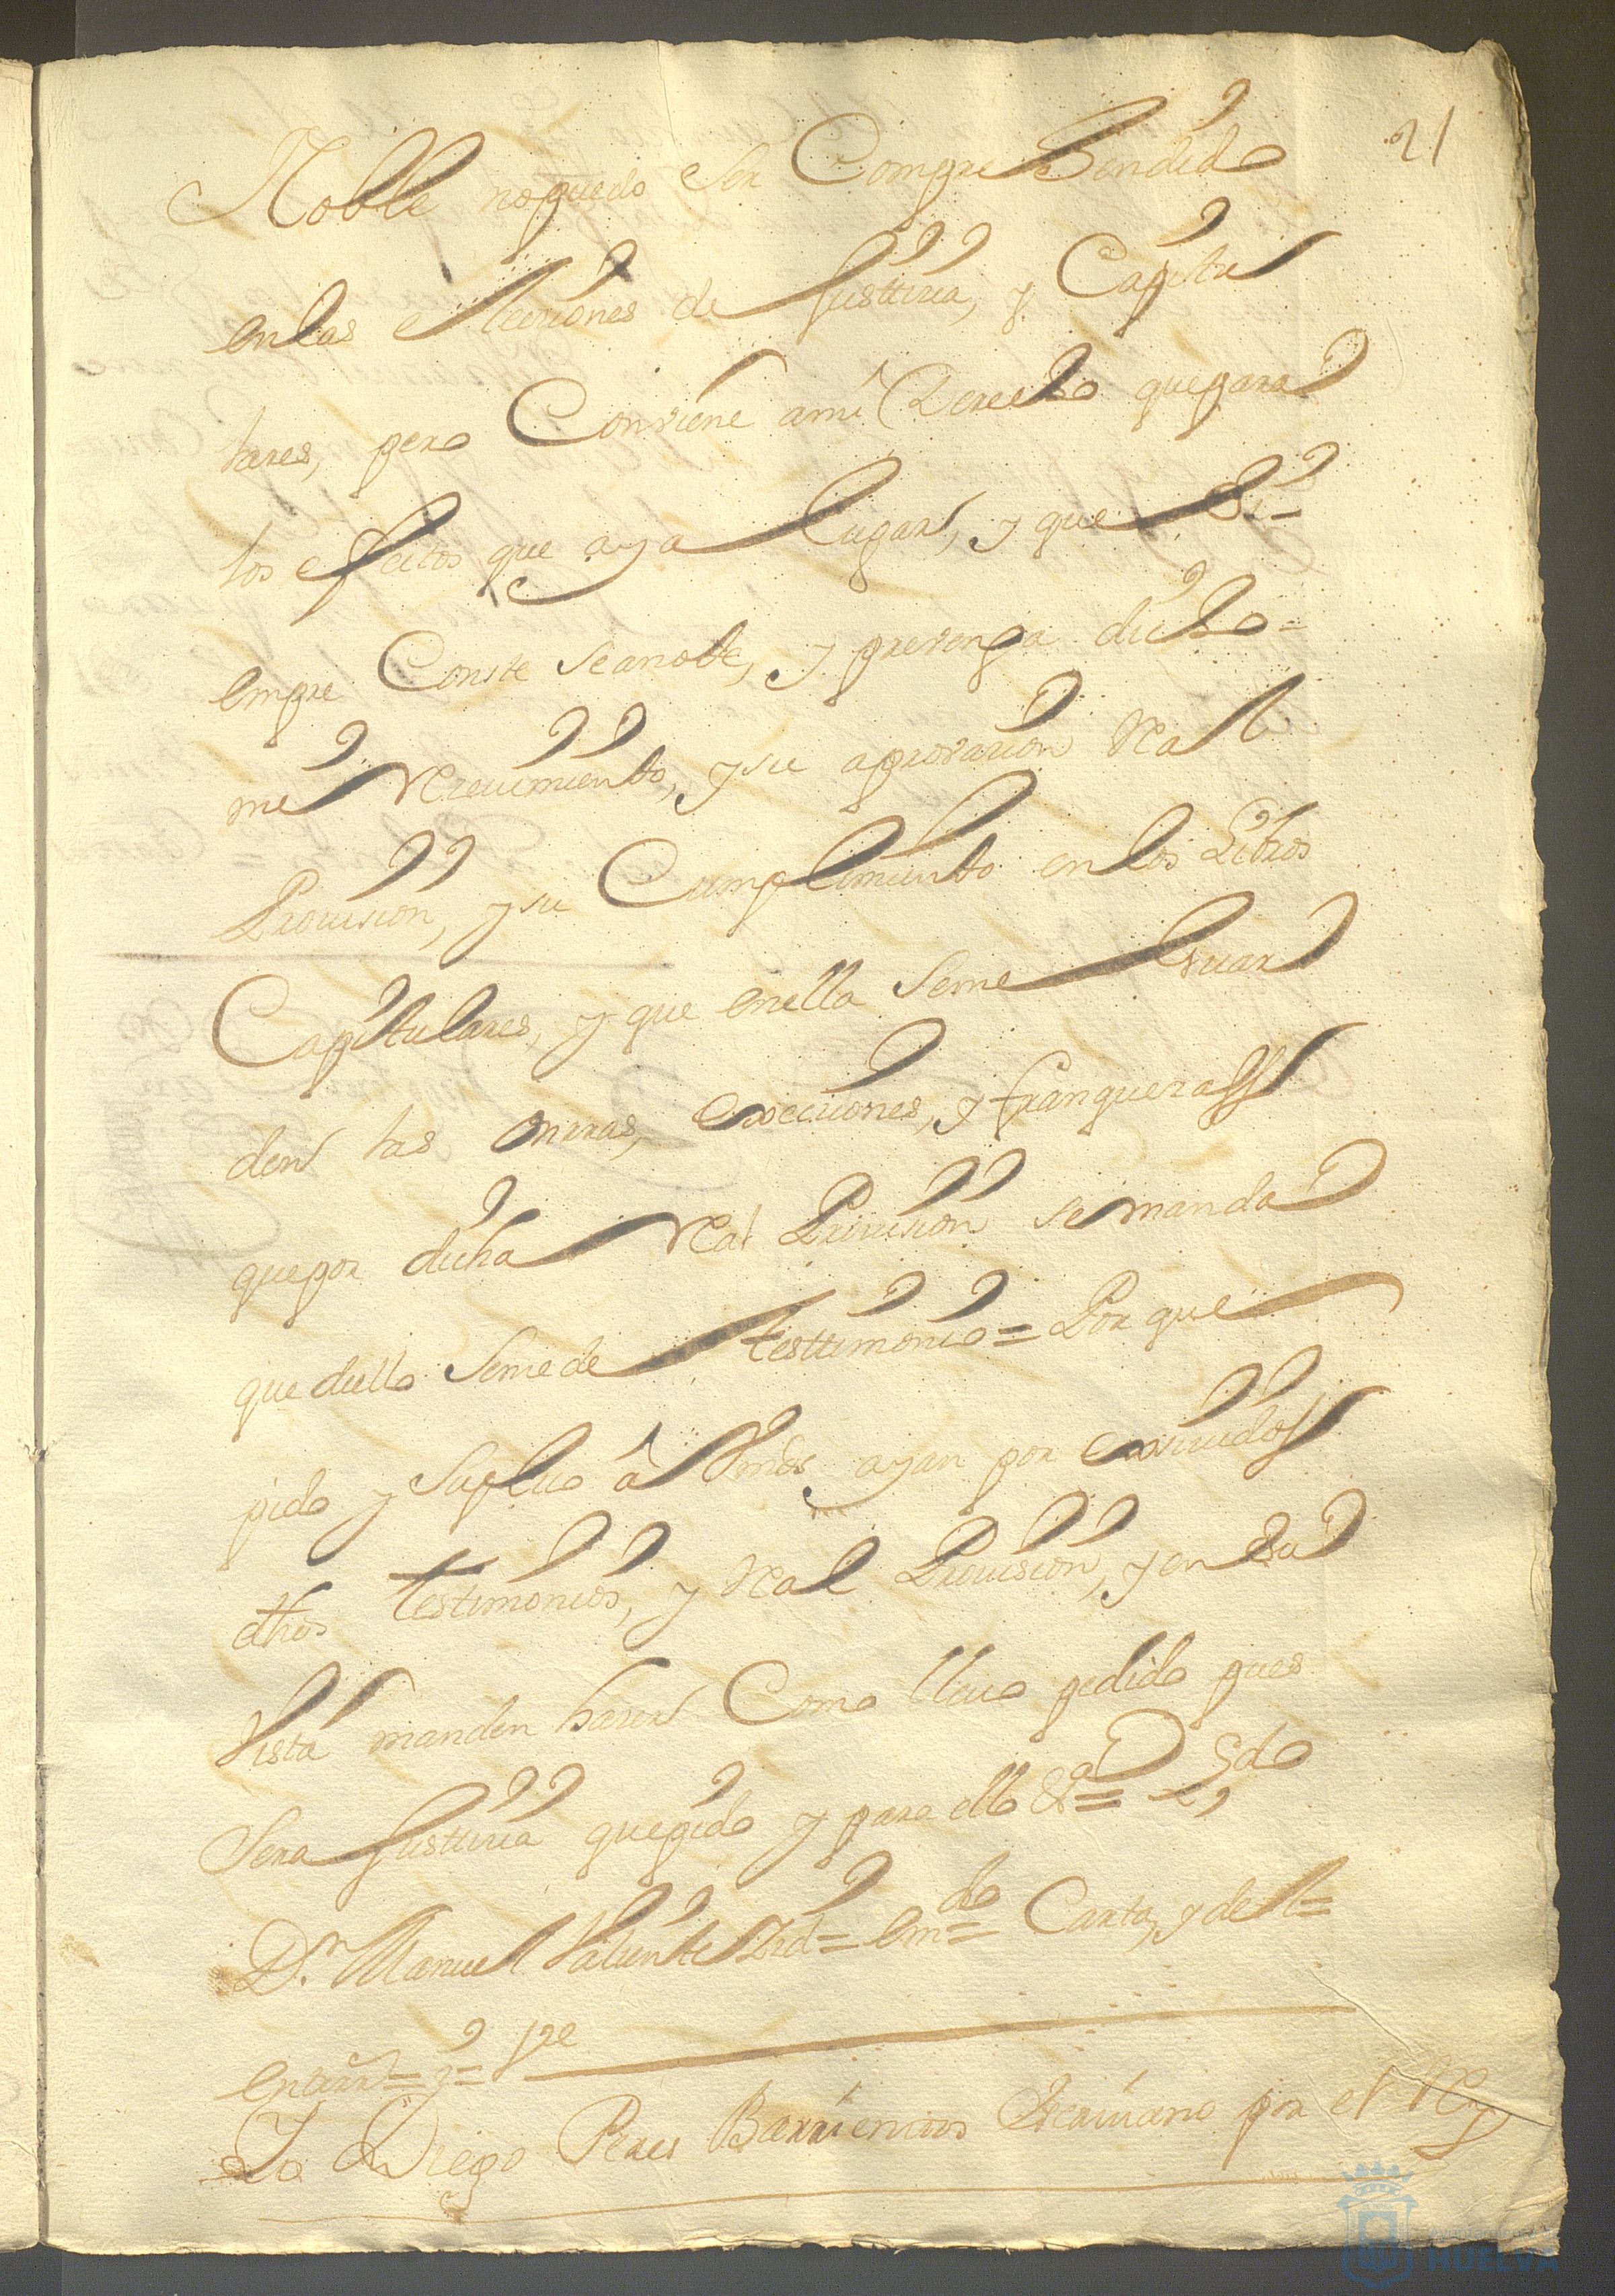 21
Noble no puedo ser Comprehendido
en las elecciones de Justicia, y Capitu
lares, pero Conviene a mi Derecho que para
los efectos que aya lugar, y que si-
empre Conste se anote, y prevenga dicho-
mi recivimiento, y su aprovacion Real
Provision, y su Cumplimiento en los Libros
Capitulares, y que en ella se me guar
den las onrras, execciones, y franquezas
que por dicha Real Provision se manda
que de ello se me de testtimonio = Por que
pido y suplico â Vmds ayan por exividos
dhos testimonios, y Real Provision, y en su
Vista manden hacer Como llevo pedido pues
sera Justticia que pido y para ello &ª = Lzdo
Dn Manuel Valiente = emdo = Carta, y del =
=
Yo Diego Peres Barrientos Escrivano por el Rey
HUELVA